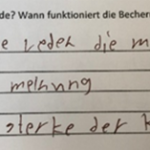 de? Wann funktioniert die Becher
e reden die m
meinung
sterke der K